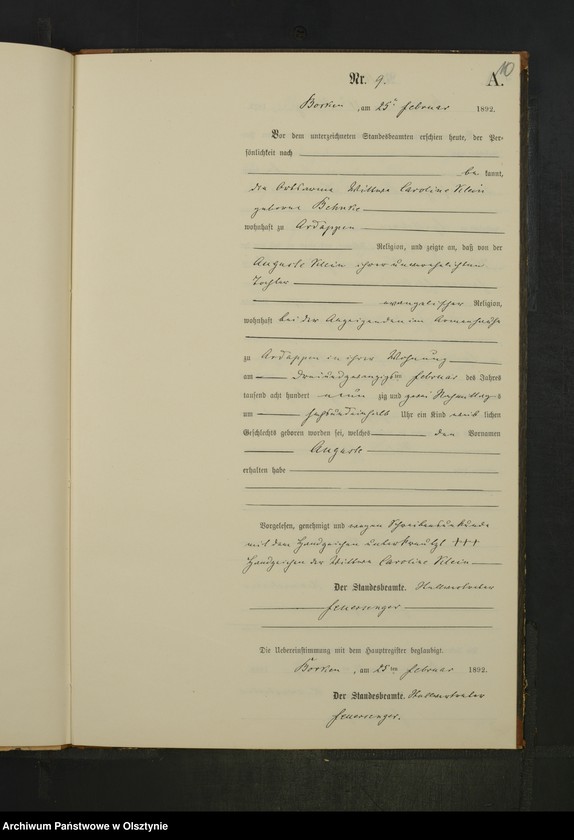 10
Nr. 9. A.
Borken, am 25ten Februar 1892.
Vor dem unterzeichneten Standesbeamten erschien heute, der Per-
sönlichkeit nach
be kannt,
die Ortsarme Wittwe Caroline Klein
geborene Behnke
wohnhaft zu Ardappen
Religion, und zeigte an, daß von der
Auguste Klein ihrer unverehelichten
Tochter
evangelischer Religion,
wohnhaft bei der Anzeigenden im Armenhause
zu Ardappen in ihrer Wohnung
am dreiundzwanzigsten Februar des Jahres
tausend acht hundert neun zig und zwei Nachmittags
um sechsundeinhalb Uhr ein Kind weib lichen
Geschlechts geboren worden sei, welches den Vornamen
Auguste
erhalten habe
Vorgelesen, genehmigt und wegen Schreibensunkunde
mit dem Handzeichen unterkreuzt +++
Handzeichen der Wittwe Caroline Klein
Der Standesbeamte. Stellvertreter
Feuersenger
Die Uebereinstimmung mit dem Hauptregister beglaubigt.
Borken, am 25ten Februar 1892.
Der Standesbeamte. Stellvertreter
Feuersenger.
Archiwum Państwowe w Olsztynie